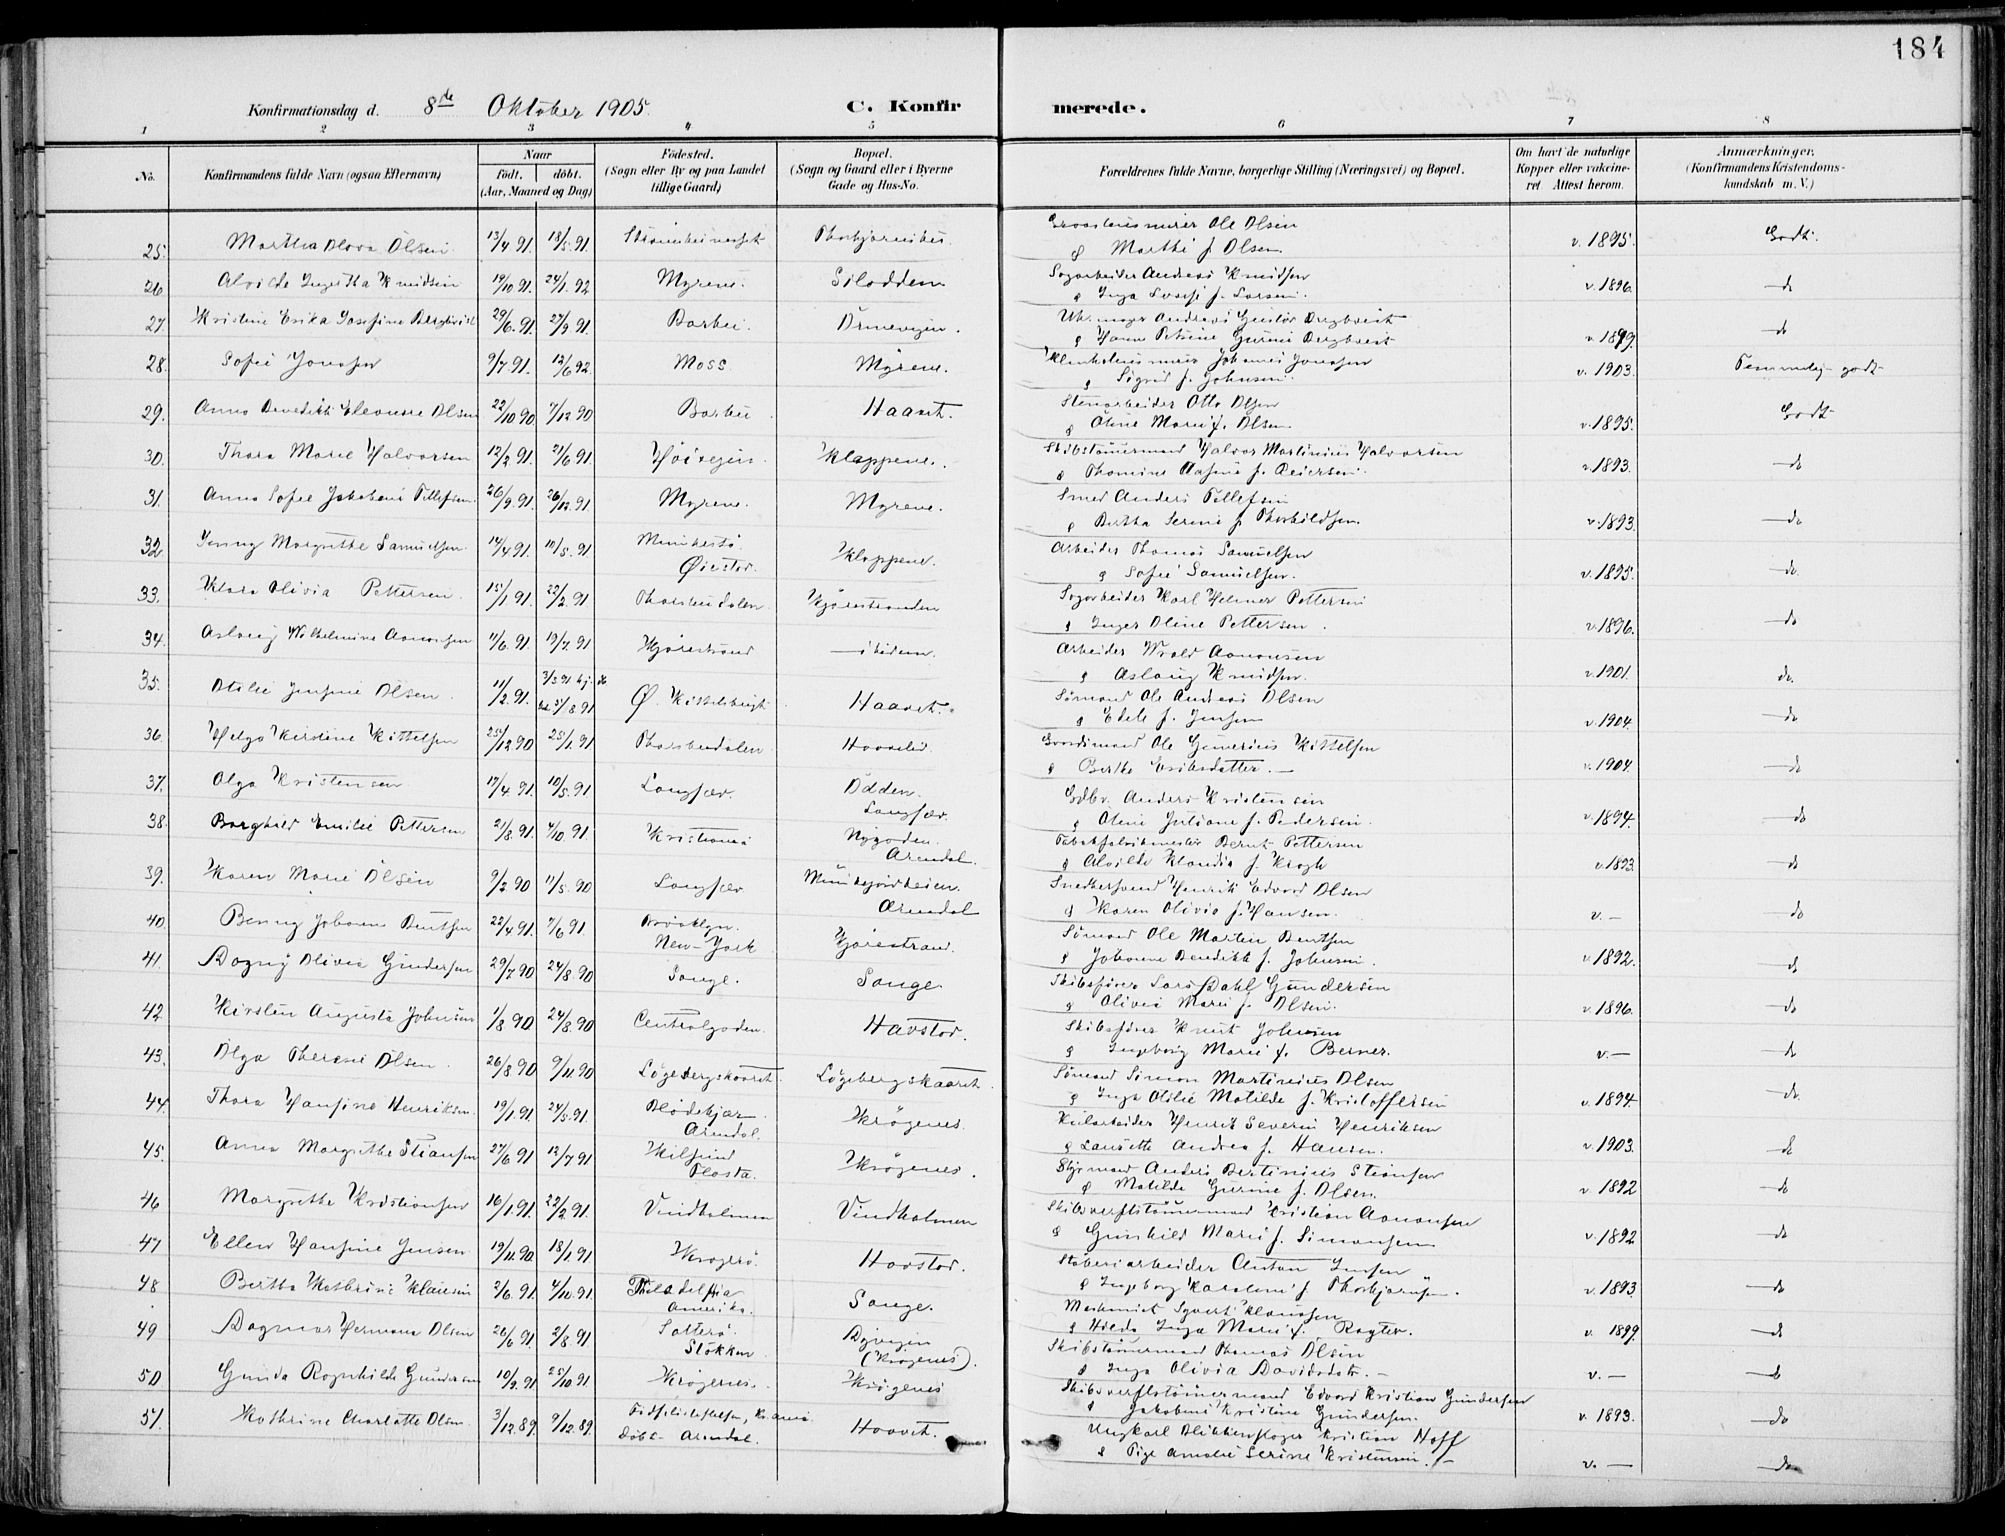 184
Konfirmationsdag d. 8de Oktober 1905. C. Konfirmerede.
1 2 3 4 5 6 7 8
No. Konfirmandens fulde Navn (ogsaa Efternavn) Naar født. døbt. (Aar, Maaned og Dag) Fødested. (Sogn eller By og paa Landet tillige Gaard) Bopæl. (Sogn og Gaard eller i Byerne Gade og Hus-No. Forældrenes fulde Navne, borgerlige Stilling (Næringsvei) og Bopæl. Om havt de naturlige Kopper eller vakcineret Attest herom. Anmærkninger. (Konfirmandens Kristendomskundskab m. V.)
25. Martha Olsen 13/4 91 18/5 91 Ole Olsen
& Marthe f. Olsen v. 1895. Godt
26 Knudsen 19/10 91. 24/1 92 Myrene. Andreas Knudsen
& Inga f. Larsen. v. 1896. do
27. Kristine Erika Josefine 29/6 91. 27/9 91. Barbu. Andreas
& v. 1899. do
28. Sofie Jonassen 9/7 91. 13/6 92. Moss. Myrene. Johannes Jonassen
& Sigrid f. Johnsen. v. 1903. Temmelig godt
29. Anna Benedikte Eleonore Olsen 22/10 90 7/12 90 Barbu Haavet. Stenarbeider Otto Olsen
& Marie f. Olsen v. 1895. Godt
30. Thora Marie Halvorsen 12/2 91. 21/6 91. Kloppene. Skibstømmermand Halvor Martinius Halvorsen
& Thomine f. Reiersen. v. 1893. do
31. Anna Sofie Jakobine Tellefsen. 26/9 91. 26/12 91. Myrene. Myrene. Smed Anders Tellefsen
& Bertha Serine f. Thorkildsen. v. 1893. do
32 Jenny Margrethe Samuelsen 14/4 91. 10/5 91 Øiestad. Kloppene. Arbeider Thomas Samuelsen
& Sofie Samuelsen. v. 1895. do
33. Klara Olivia Pettersen. 15/1 91. 22/2 91 Thorbudalen. Kjørestranden Karl Helmer Pettersen
& Inger Oline Pettersen. v. 1896. do
34. Aslaug Wilhelmine Aanonsen 11/6 91. 19/7 91 Kjørestrand ibidem. Arbeider Aanonsen
& Aslaug Knudsen. v. 1901. do.
35. Otilie Jensine Olsen. 11/2 91. Haavet. Sømand Ole Andreas Olsen
& Edele f. Jensen v. 1904. do
36. Helga Kerstine Kittelsen 25/12 90 25/1 91 Thorbudalen Ole Kittelsen
& Berthe Eriksdatter. v. 1904. do
37. Olga Kristensen 17/4 91. 10/5 91. Langsæv. Odden. Langsæv. Anders Kristensen
& Oline Juliane f. Pedersen. v. 1894. do
38. Borghild Emilie Pettersen 21/8 91. 4/10 91. Kristiania Nygaden. Arendal. Bernt Pettersen
& Alvilde Klaudia f. Krogh v. 1893. do
39. Karen Marie Olsen 9/2 90 11/5 90 Langsæv Arendal Henrik Edvard Olsen
& Karen Olivia f. Hansen. v. — do
40. Benny Johanne Bentsen 22/4 91. 7/6 91. Brooklyn. New-York Kjørestrand. Sømand Ole Martin Bentsen
& Johanne Benedikte f. Johnsen. v. 1892. do
41. Dagny Olivia Gundersen 29/7 90 24/8 90 Songe. Songe Skibsfører Lars Dahl Gundersen
& Olivia Marie f. Olsen. v. 1896. do
42 Kirsten Augusta Johnsen 1/8 90 24/8 90 Centralgaden. Havstad. Skibsfører Knut Johnsen
& Ingeborg Marie f. Berner. v. — do
43. Olga Therese Olsen. 26/8 90 9/11 90 Løgebergskaaret Løgebergskaaret. Sømand Simon Martinius Olsen
& Inga Otilie Matilde f. Kristoffersen v. 1894. do.
44. Thora Hansine Henriksen. 19/1 91. 24/5 91. Blødekjær. Arendal. Krøgenes. Henrik Severin Henriksen
& Laurette Andrea f. Hansen. v. 1903. do
45. Anna Margrethe Stiansen 27/6 91 12/7 91 Kilsund Flosta. Krøgenes. Styrmand Anders Bertinius Stiansen
& Matilde Gurine f. Olsen. v. 1892 do
46 Margrethe Kristiansen 16/1 91. 22/2 91. Vindholmen Vindholmen Kristian Aanonsen
& Gunhild Marie f. Simonsen v. 1892 do
47 Ellen Hansine Jensen 19/11 90 18/1 91 Kragerø. Havstad. Støberiarbeider Anton Jensen
& Ingeborg Karoline f. Thorbjørnsen. v. 1893 do
48 Bertha Kathrine Klausen 2/6 91. 4/10 91. Filadelfia Amerika. Songe. Maskinist Syvert Klausen
& Hilda Inga Marie f. v. 1899. do
49 Dagmar Hermana Olsen 26/6 91 2/8 91 Saltrø. Stokken (Krøgenes). Skibstømmermand Thomas Olsen
& Inga Olivia Davidsdtr. v. — do
50 Gunda Ragnhilde Gundersen 10/9 91 25/10 91 Krøgenes. Krøgenes Edvard Kristian Gundersen
& Jakobine Kristine Gundersen. v. 1893. do
51. Kathrine Charlotte Olsen 3/12 89. 9/12 89. døbt Arendal. Haavet. Ungkarl Kristian Hoff
& Pige Amalie Serine Kristensen. v. — do